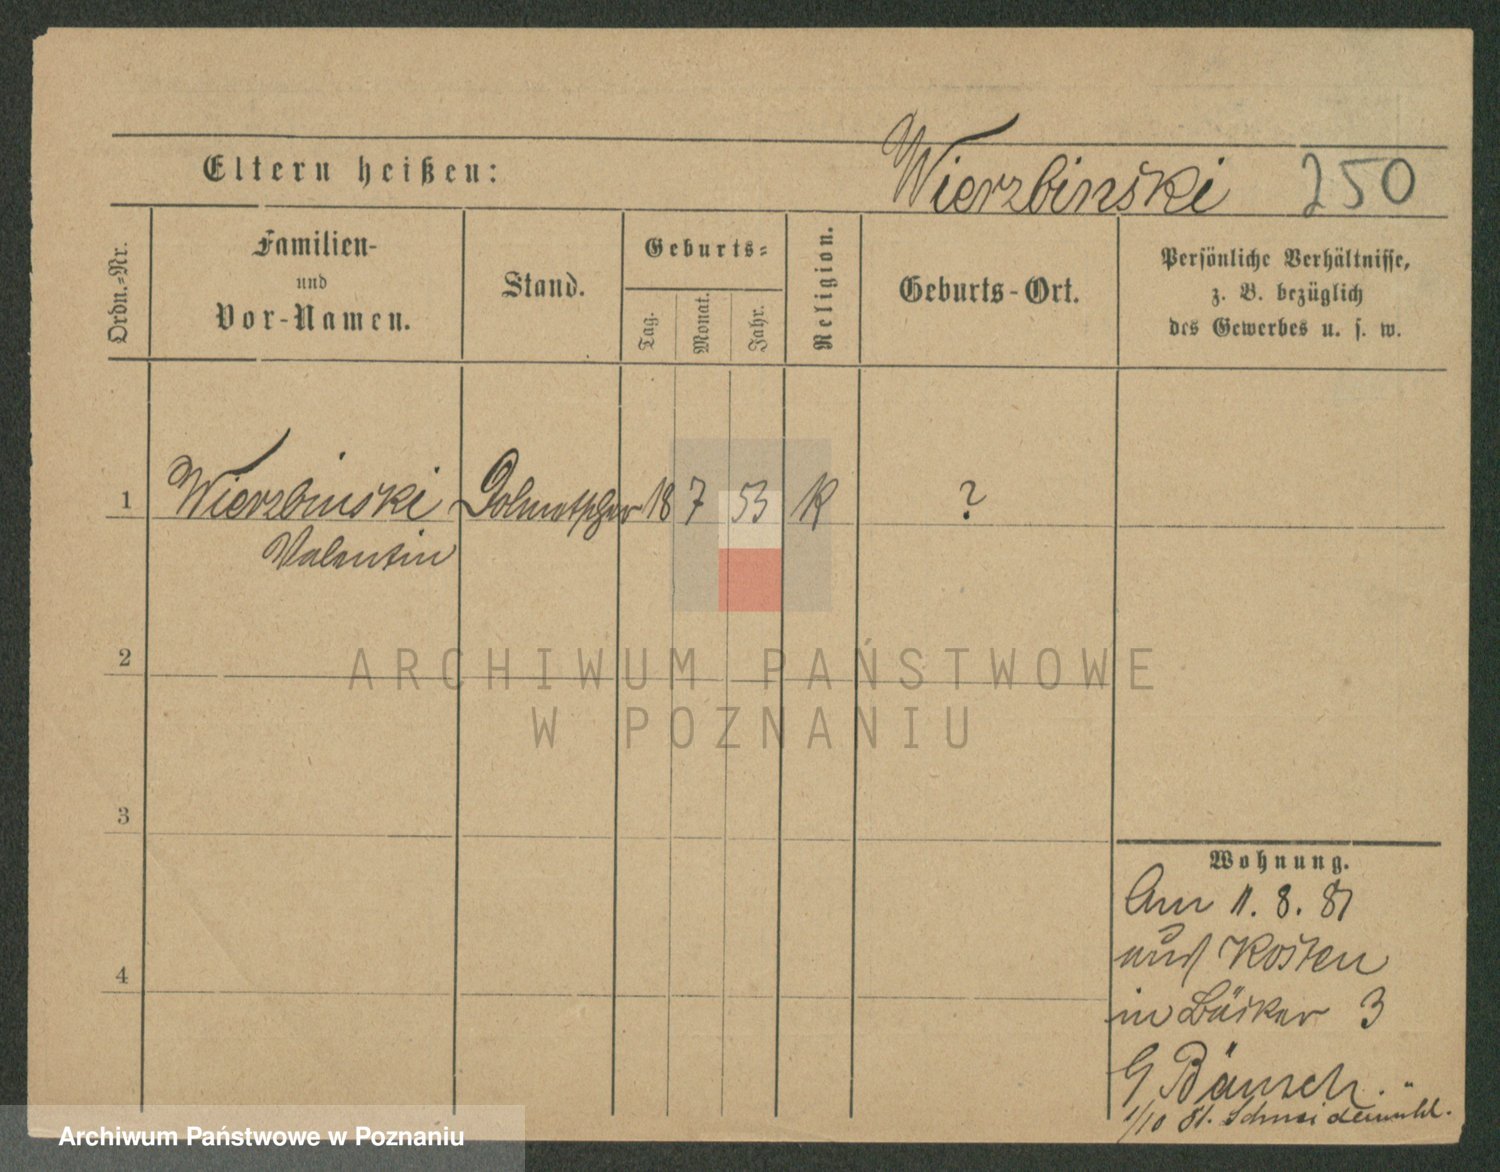 Wierzbinski 250
Eltern heißen:
Ordn.-Nr.
Familien-
und
Vor-Namen.
Stand.
Geburts-
Tag.
Monat.
Jahr.
Religion.
Geburts-Ort.
Persönliche Verhältnisse,
z. B. bezüglich
des Gewerbes u. s. w.
1 Wierzbinski Dolmetscher 18 7 53 K ?
Valentin
2
ARCHIWUM PAŃSTWOWE
W POZNANIU
3
4
Wohnung.
Am 11. 8. 81
aus Kosten
in Bäcker 3
G Bänsch.
1/10 81. Schneidemühl.
Archiwum Państwowe w Poznaniu